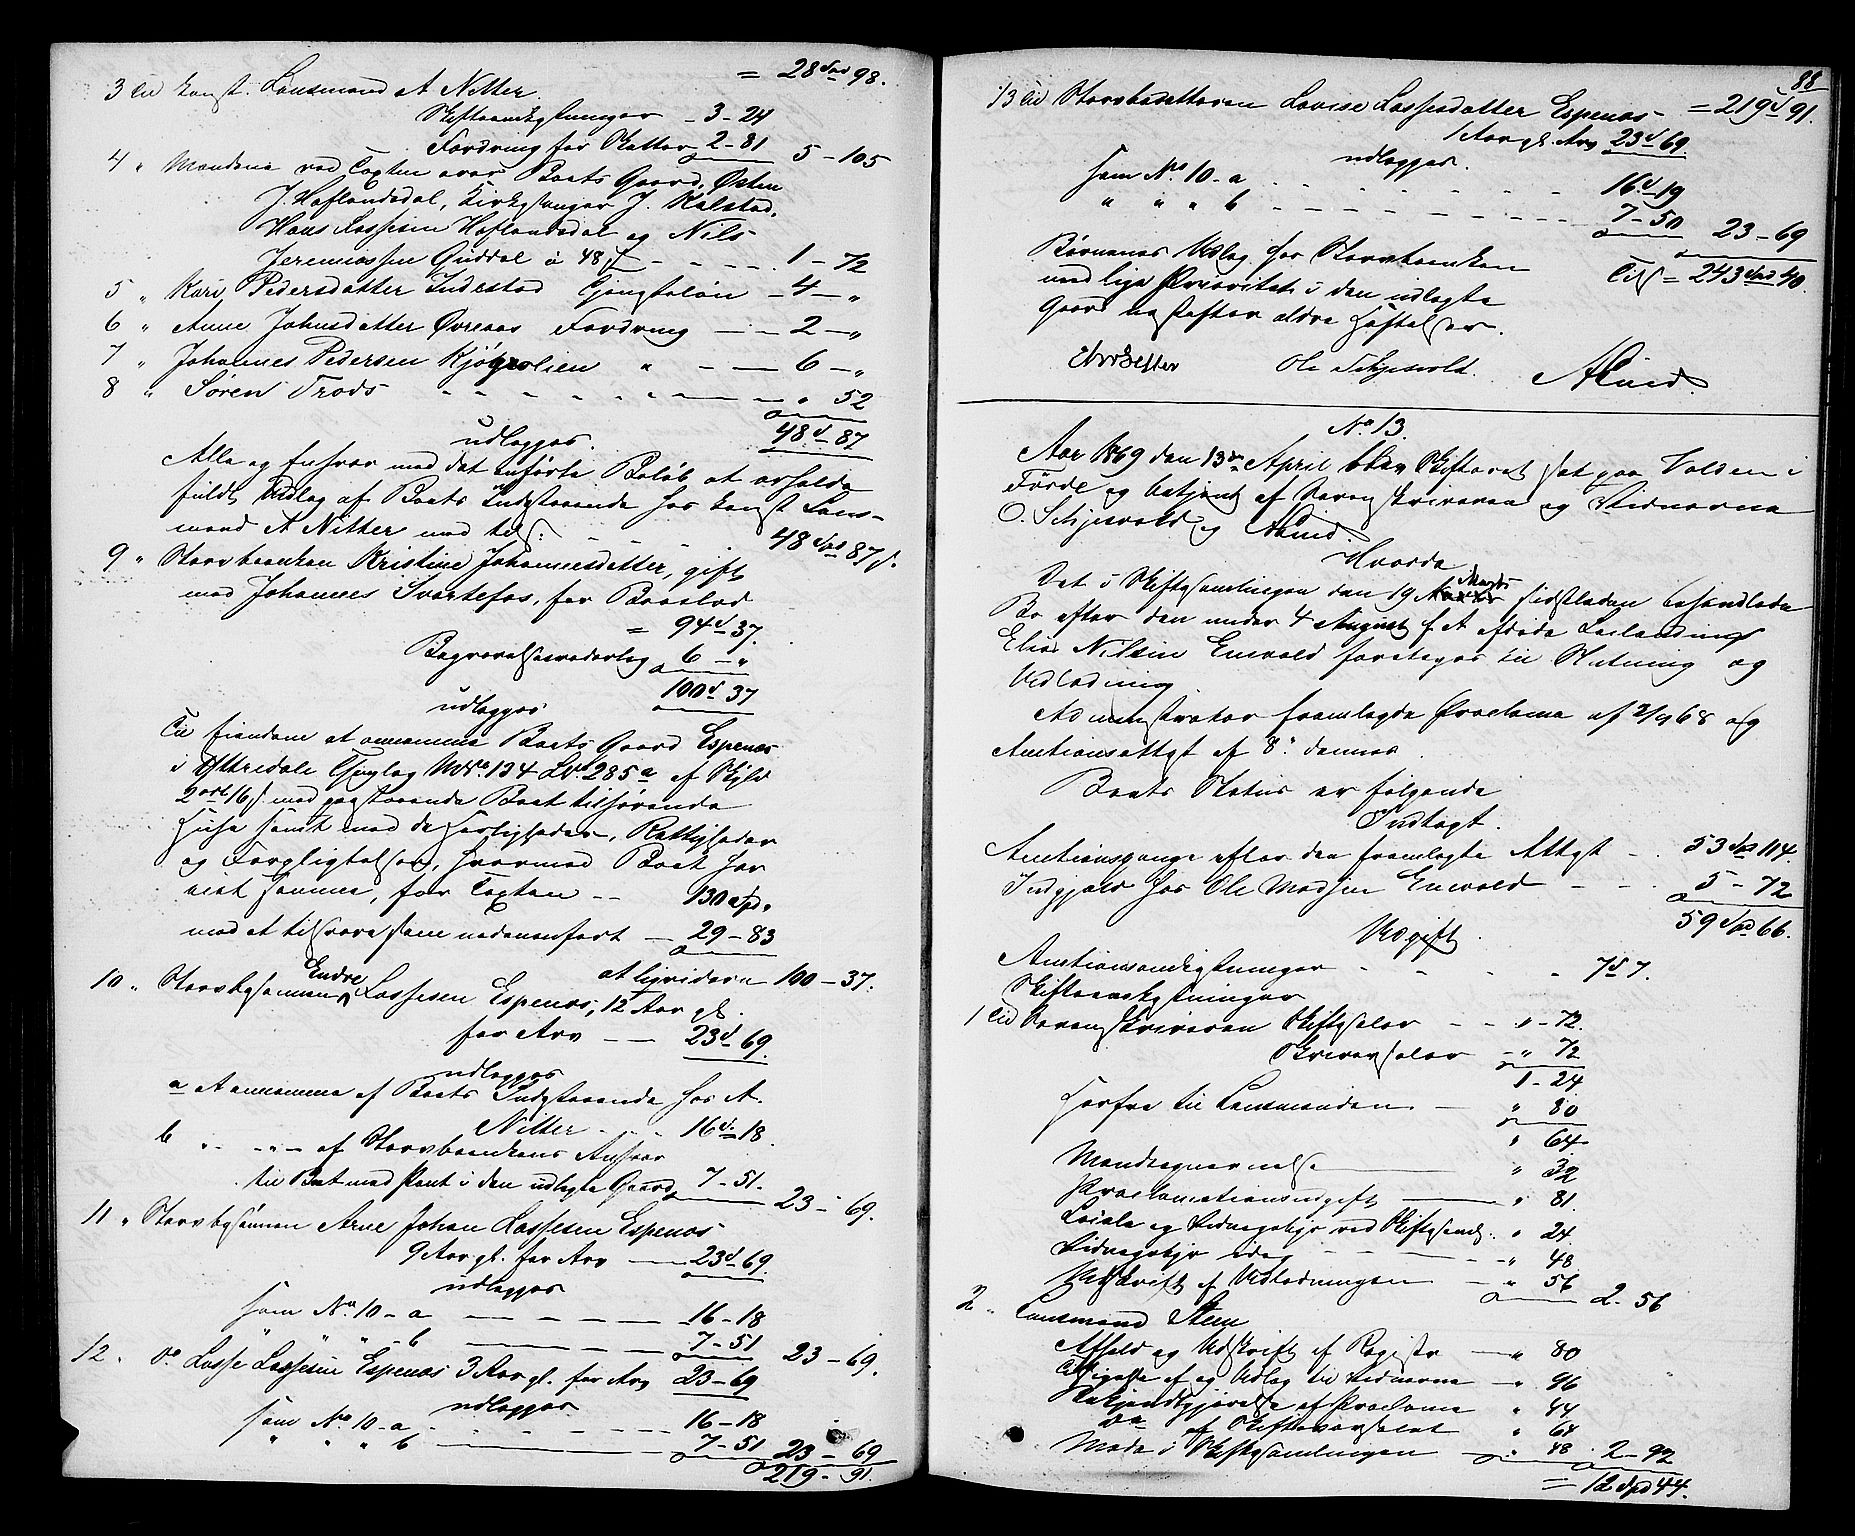 = 28 Spd 98.
3 Til const. Lensmand A Nitter
Skifteomkostninger - 3-24
Fordring for Skatter 2-81 5-105
4 " Mændene ved Taxten over Boets Gaard, Østen
J. Haflandsdal, Kirkesanger J. Kalstad,
Hans Lassesen Haflandsdal og Nils
Jeremiassen Guddal à 48 ß - - - - 1-72
5 " Kari Pedersdatter Indrestad Gjengteløn - 4 - "
6 " Anne Johnsdatter Øvreaas Fordring - - 2 - "
7 " Johannes Pedersen Kjøgeslien " - - 6 - "
8 " Søren Trods - - - - - - - " 52
48 d 87
udlægges.
Alle og Enhver med det anførte Beløb at erholde
fuldt Udlæg af Boets Indestaaende hos const Lens-
mand A Nitter med tils: - - - 48 Spd 87 ß.
9 " Stervboenken Kristine Johannesdatter, gift
med Johannes Svartefos, for Boeslod
= 94 d 37.
Begravelsesvederlag 6 - "
100 d 37
udlægges
Til Eiendom at annamme Boets Gaard Espenæs
i Yttredale Thinglag M.No. 134 L.No. 285a af Skyld
2 ort 16 ß. med paastaaende Boet tilhørende
Huse samt med de Herligheder, Rettigheder
og Forpligtelser, hvormed Boet har
eiet samme, for Taxten - - 130 Spd.
med at tilsvare som nedenanført - 29-83
at liqvidere 100-37.
10 " Stervbosønnen Endre Lassesen Espenæs, 12 Aar gl.
for Arv - - 23 d 69.
udlægges
a At annamme af Boets Indestaaende hos A.
Nitter - - - 16 d 18
b " - " - af Stervboenkens Ansvar
til Boet med Pant i den udlagte Gaard 7-51. 23-69.
11 " Stervbosønnen Arne Johan Lassesen Espenæs
9 Aar gl. for Arv - - 23 d 69.
udlægges
som No 10-a - - - - - 16-18
" " " - b - - - - 7-51 23-69.
12 " Do Lasse Lassesen Espenæs 3 Aar gl. for Arv 23-69
udlægges
som No 10-a - - - - - 16-18
" " " b - - - - 7-51 23-69
219-91.
88
13 Til Stervbodatteren Lovise Lassesdatter Espenæs - = 219 d 91.
1 Aar gl. Arv 23 d 69.
udlægges.
som No 10-a - - - - - 16 d 19
" " " b - - - - - 7-50 23-69
Tils = 243 Spd 40.
Børnenes Udlæg hos Stervboenken
med lige Prioritet i den udlagte
Gaard næstefter ældre Heftelser.
Ole Schjervold. ALund.
No 13.
Aar 1869 den 13de April blev Skifteret sat paa Halsen i
Førde og betjent af Sorenskriveren og Vidnerne
O. Schjervold og ALund.
Hvorda
Det i Skiftesamlingen den 19 Marts sidstleden behandlede
Bo efter den under 4 August f. A afdøde Leilending
Elias Nilsen Enevold foretoges til Slutning og
Udlodning.
Administrator fremlagde Proclama af 2/9 68 og
Auctionsattest af 8. dennes.
Boets Status er følgende
Indtægt.
Auctionspenge efter den fremlagte Attest - . 53 Spd 114.
Indgjæld hos Ole Madsen Enevold - - - 5-72
59 Spd 66.
Udgift.
Auctionsomkostninger - - - - 7 d 7.
Skifteomkostninger
1 Til Sorenskriveren Skiftesalær - - " - 72.
Skriversalær - " 72
1-24
Herfra til Lensmanden - " 80
" 64
Mandsopnævnelse " 32
Proclamationsudgift " 81.
Locale og Vidnegebyr ved Skiftesaml. " 24
Vidnegebyr idag - - - " 48
Udskrift af Udlodningen - " 56 2-56
2 " Lensmand Steen
Afhold og Udskrift af Registr - " 80
Tilsigelse af og Udlæg til Vidnerne - " 96
Bekjendtgjørelse af Proclama " 44
Do af Skiftevarselet " 64
Møde i Skiftesamlingen - " 48 2-92
= 12 Spd 44.